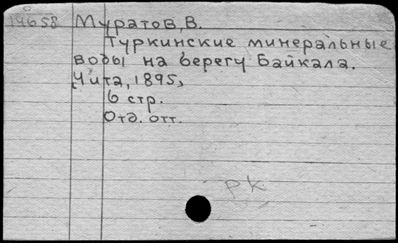 14658 Муратов, В.
Туркинские минеральные
воды на берегу Байкала.
Чита, 1895,
6 стр.
Отд. отт.
РК